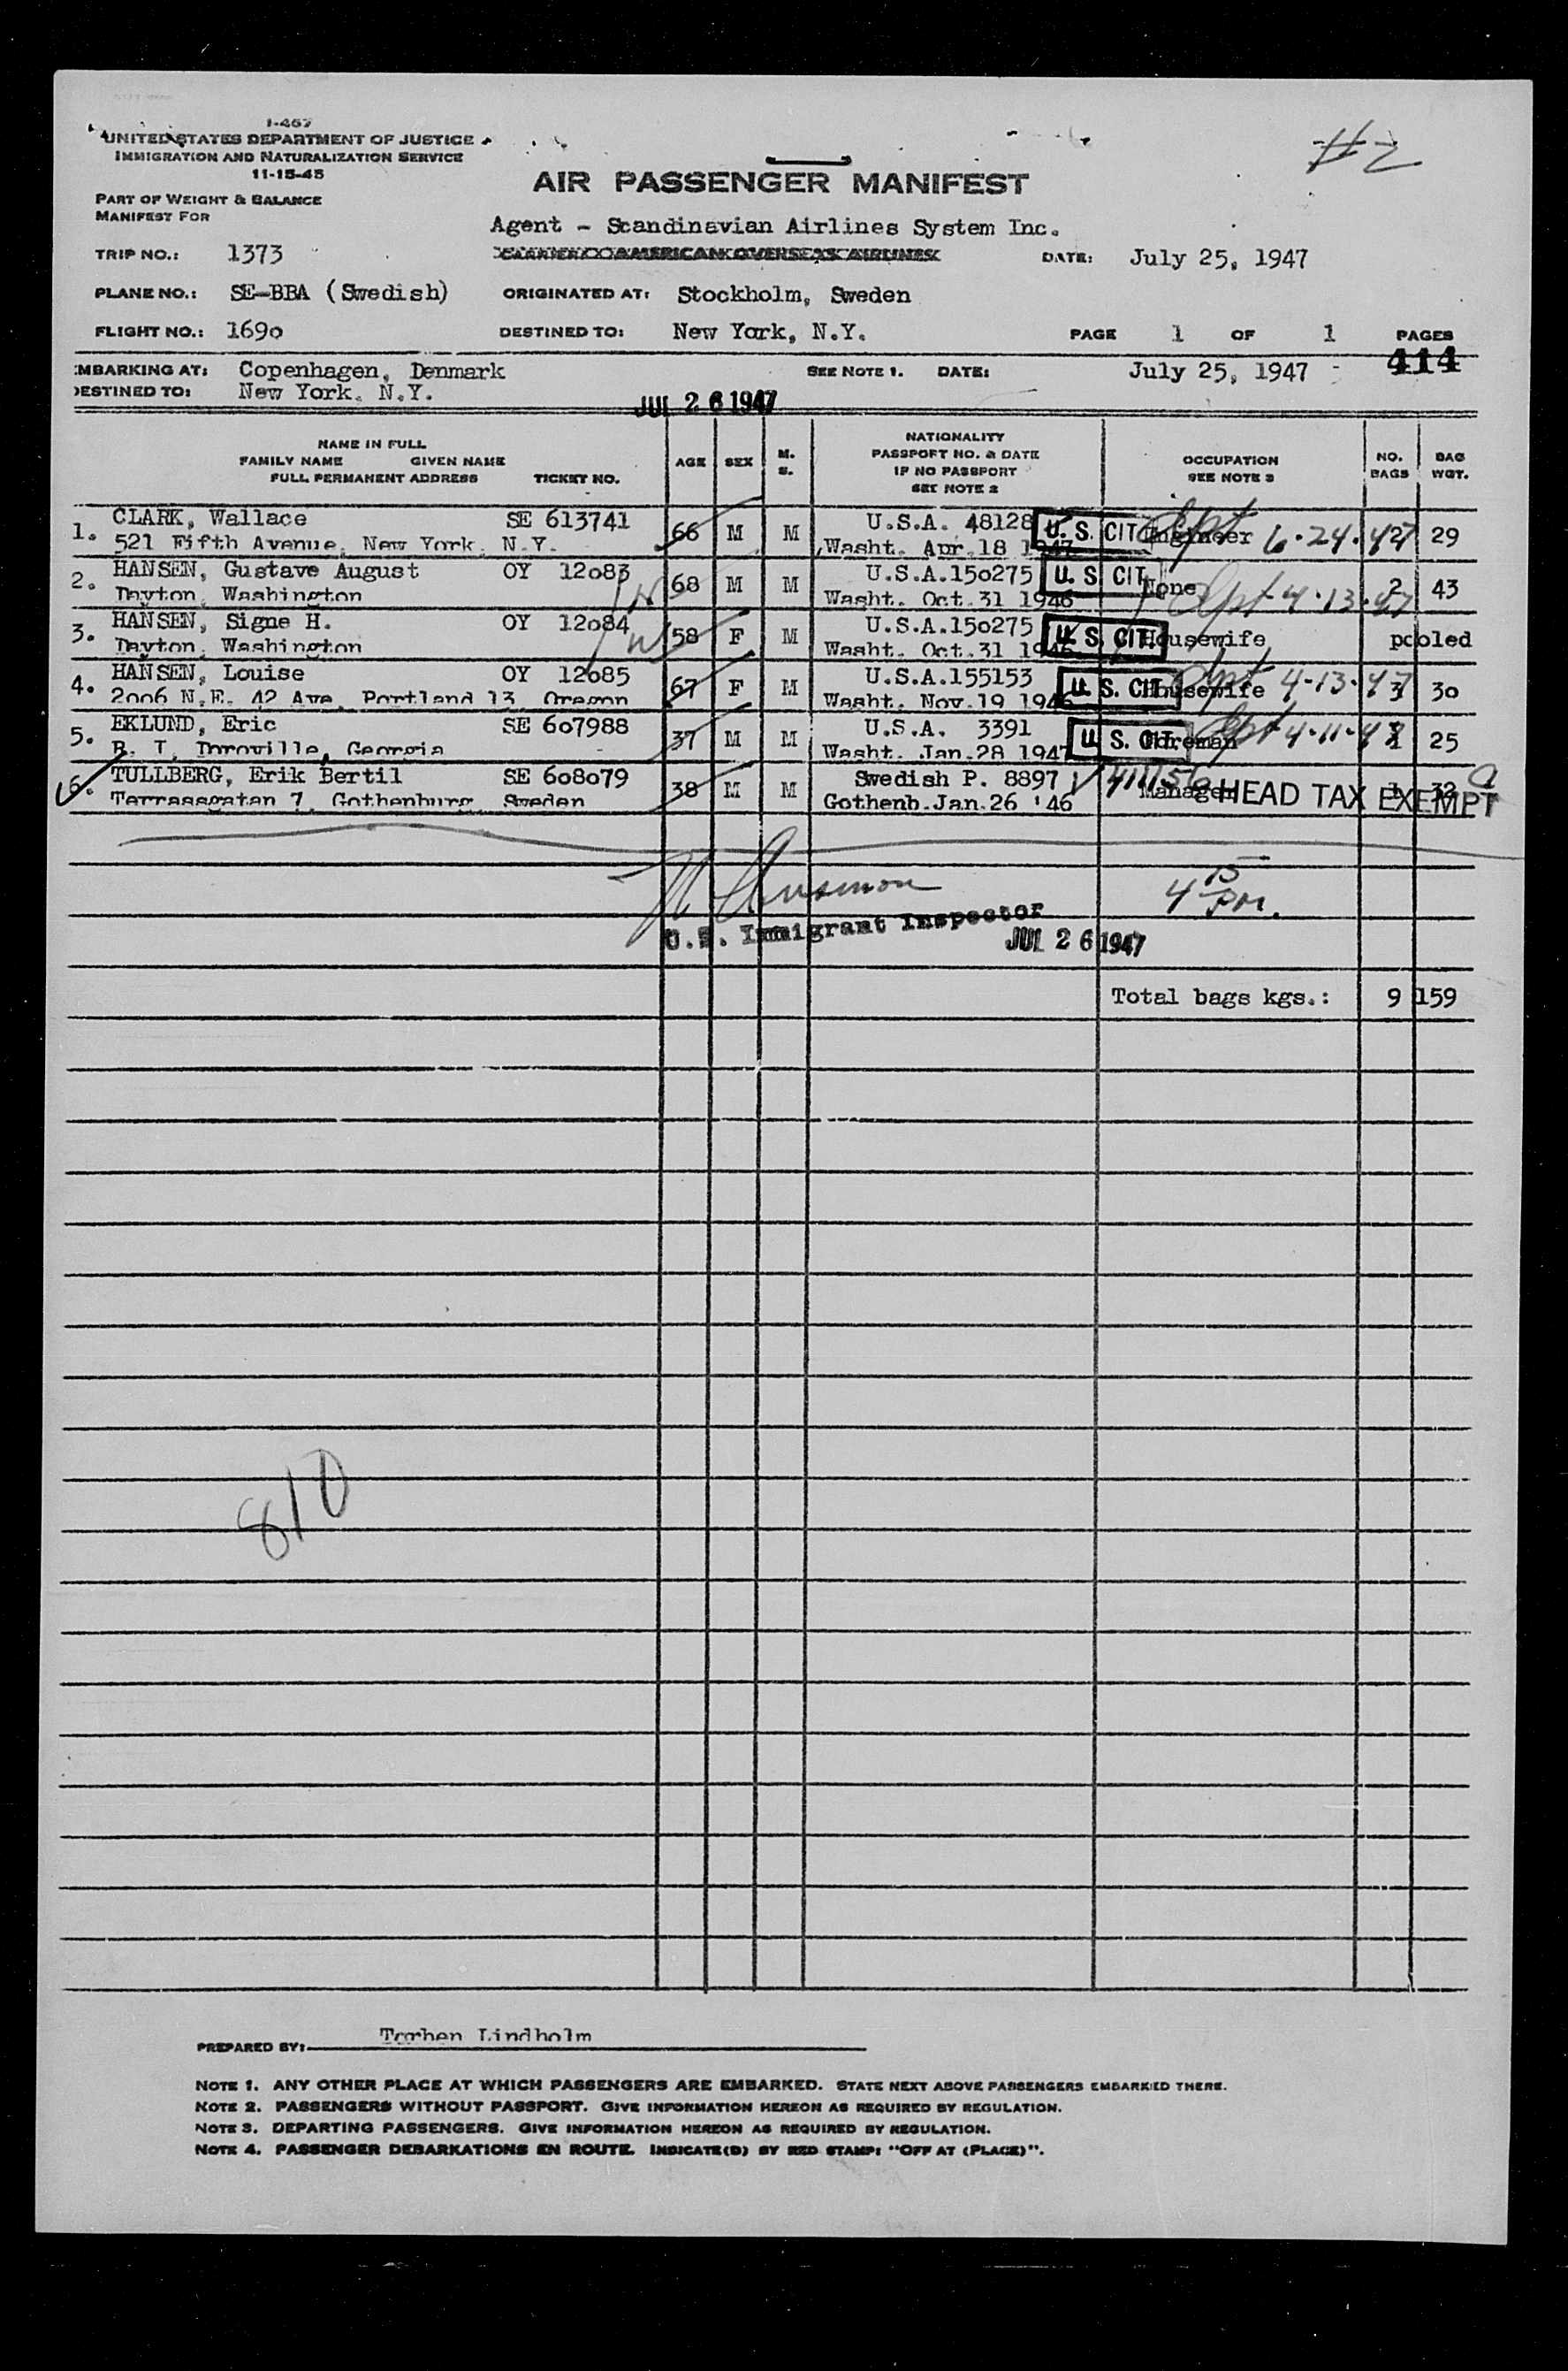 I-467
UNITED STATES DEPARTMENT OF JUSTICE
IMMIGRATION AND NATURALIZATION SERVICE
11-15-45
#2
AIR PASSENGER MANIFEST
PART OF WEIGHT & BALANCE
MANIFEST FOR
Agent - Scandinavian Airlines System Inc.
TRIP NO.: 1373 CARRIER: AMERICAN OVERSEAS AIRLINES DATE: July 25, 1947
PLANE NO.: SE-BBA (Swedish) ORIGINATED AT: Stockholm, Sweden
FLIGHT NO.: 1690 DESTINED TO: New York, N.Y. PAGE 1 OF 1 PAGES
414
EMBARKING AT: Copenhagen, Denmark SEE NOTE 1. DATE: July 25, 1947
DESTINED TO: New York, N.Y.
JUL 26 1947
NAME IN FULL
FAMILY NAME GIVEN NAME
FULL PERMANENT ADDRESS TICKET NO.
AGE SEX M. S.
NATIONALITY
PASSPORT NO. & DATE
IF NO PASSPORT
SEE NOTE 2
OCCUPATION
SEE NOTE 3
NO. BAGS
BAG WGT.
1. CLARK, Wallace SE 613741 66 M M U.S.A. 48128 U.S. CIT. Engineer 6.24.47 2 29
521 Fifth Avenue, New York, N.Y. Washt. Apr.18 1947
2. HANSEN, Gustave August OY 12083 68 M M U.S.A.150275 U.S. CIT. None 4.13.47 2 43
Dayton, Washington Washt. Oct.31 1946
3. HANSEN, Signe H. OY 12084 58 F M U.S.A.150275 U.S. CIT. Housewife pooled
Dayton, Washington Washt. Oct.31 1946
4. HANSEN, Louise OY 12085 67 F M U.S.A.155153 U.S. CIT. Housewife 4-13-47 3 30
2006 N.E. 42 Ave. Portland 13, Oregon Washt. Nov.19 1946
5. EKLUND, Eric SE 607988 37 M M U.S.A. 3391 U.S. CIT. Foreman 4-11-47 1 25
R. I, Doroville, Georgia Washt. Jan.28 1947
6. TULLBERG, Erik Bertil SE 608079 38 M M Swedish P. 8897 Manager 1 32
Terrassgatan 7, Gothenburg, Sweden Gothenb.Jan.26 '46 HEAD TAX EXEMPT
4 15 P.M.
U.S. Immigrant Inspector
JUL 26 1947
Total bags kgs.: 9 159
810
PREPARED BY: Torben Lindholm
NOTE 1. ANY OTHER PLACE AT WHICH PASSENGERS ARE EMBARKED. STATE NEXT ABOVE PASSENGERS EMBARKED THERE.
NOTE 2. PASSENGERS WITHOUT PASSPORT. GIVE INFORMATION HEREON AS REQUIRED BY REGULATION.
NOTE 3. DEPARTING PASSENGERS. GIVE INFORMATION HEREON AS REQUIRED BY REGULATION.
NOTE 4. PASSENGER DEBARKATIONS EN ROUTE. INDICATE(D) BY RED STAMP: "OFF AT (PLACE)".